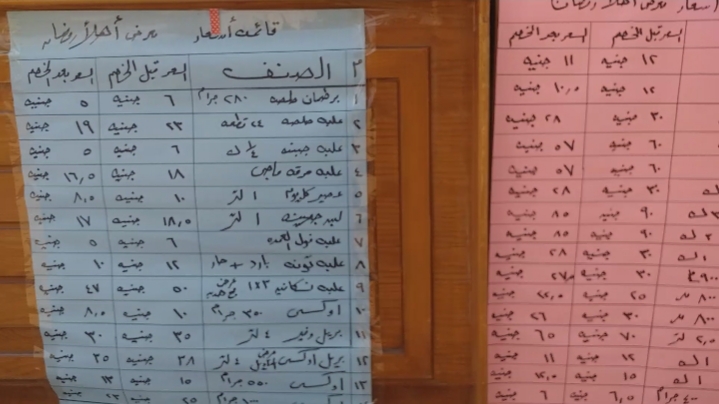 قائمة أسعار معرض أهلا رمضان
م الصنف السعر قبل الخصم السعر بعد الخصم
١ برطمان صلصه ٢٨٠ جرام ٦ جنيه ٥ جنيه
٢ علبه صلصه ٢٤ قطعه ٢٣ جنيه ١٩ جنيه
٣ علبه جبنه ١/٤ ك ٦ جنيه ٥ جنيه
٤ علبه مرقه ماجى ١٨ جنيه ١٦,٥ جنيه
٥ عصير ١ لتر ١٠ جنيه ٨,٥ جنيه
٦ لبن جهينه ١ لتر ١٨,٥ جنيه ١٧ جنيه
٧ علبه فول ٦ جنيه ٥ جنيه
٨ علبه تونه بارد + حار ١٢ جنيه ١٠ جنيه
٩ علبه ٥٠ جنيه ٤٧ جنيه
١٠ اوكسى ٣٥٠ جرام ١٠ جنيه ٨,٥ جنيه
١١ بريل ٤ لتر ٣٥ جنيه ٣٠ جنيه
١٢ بريل اوكسى ٤ لتر ٣٨ جنيه ٣٥ جنيه
١٣ اوكسى ٥٥٠ جرام ١٥ جنيه ١٣ جنيه
أسعار معرض أهلا رمضان
السعر قبل الخصم السعر بعد الخصم
١٢ جنيه ١١ جنيه
١٢ جنيه ١٠,٥ جنيه
٣٠ جنيه ٢٨ جنيه
٦٠ جنيه ٥٧ جنيه
٦٠ جنيه ٥٧ جنيه
٣٠ جنيه ٢٨ جنيه
٩٠ جنيه ٨٥ جنيه
٩٠ جنيه ٨٥ جنيه
١ ك ٣٠ جنيه ٢٨ جنيه
٩٠٠ ٣٠ جنيه ٢٧ جنيه
٨٠٠ ٢٥ جنيه جنيه
٨٠٠ ٣٠ جنيه ٢٦ جنيه
٢,٥ لتر ٧٠ جنيه ٦٥ جنيه
١ ك ١٢ جنيه ١١ جنيه
١ ك ١٥ جنيه جنيه
٤٠٠ جرام ٦,٥ جنيه ٦ جنيه